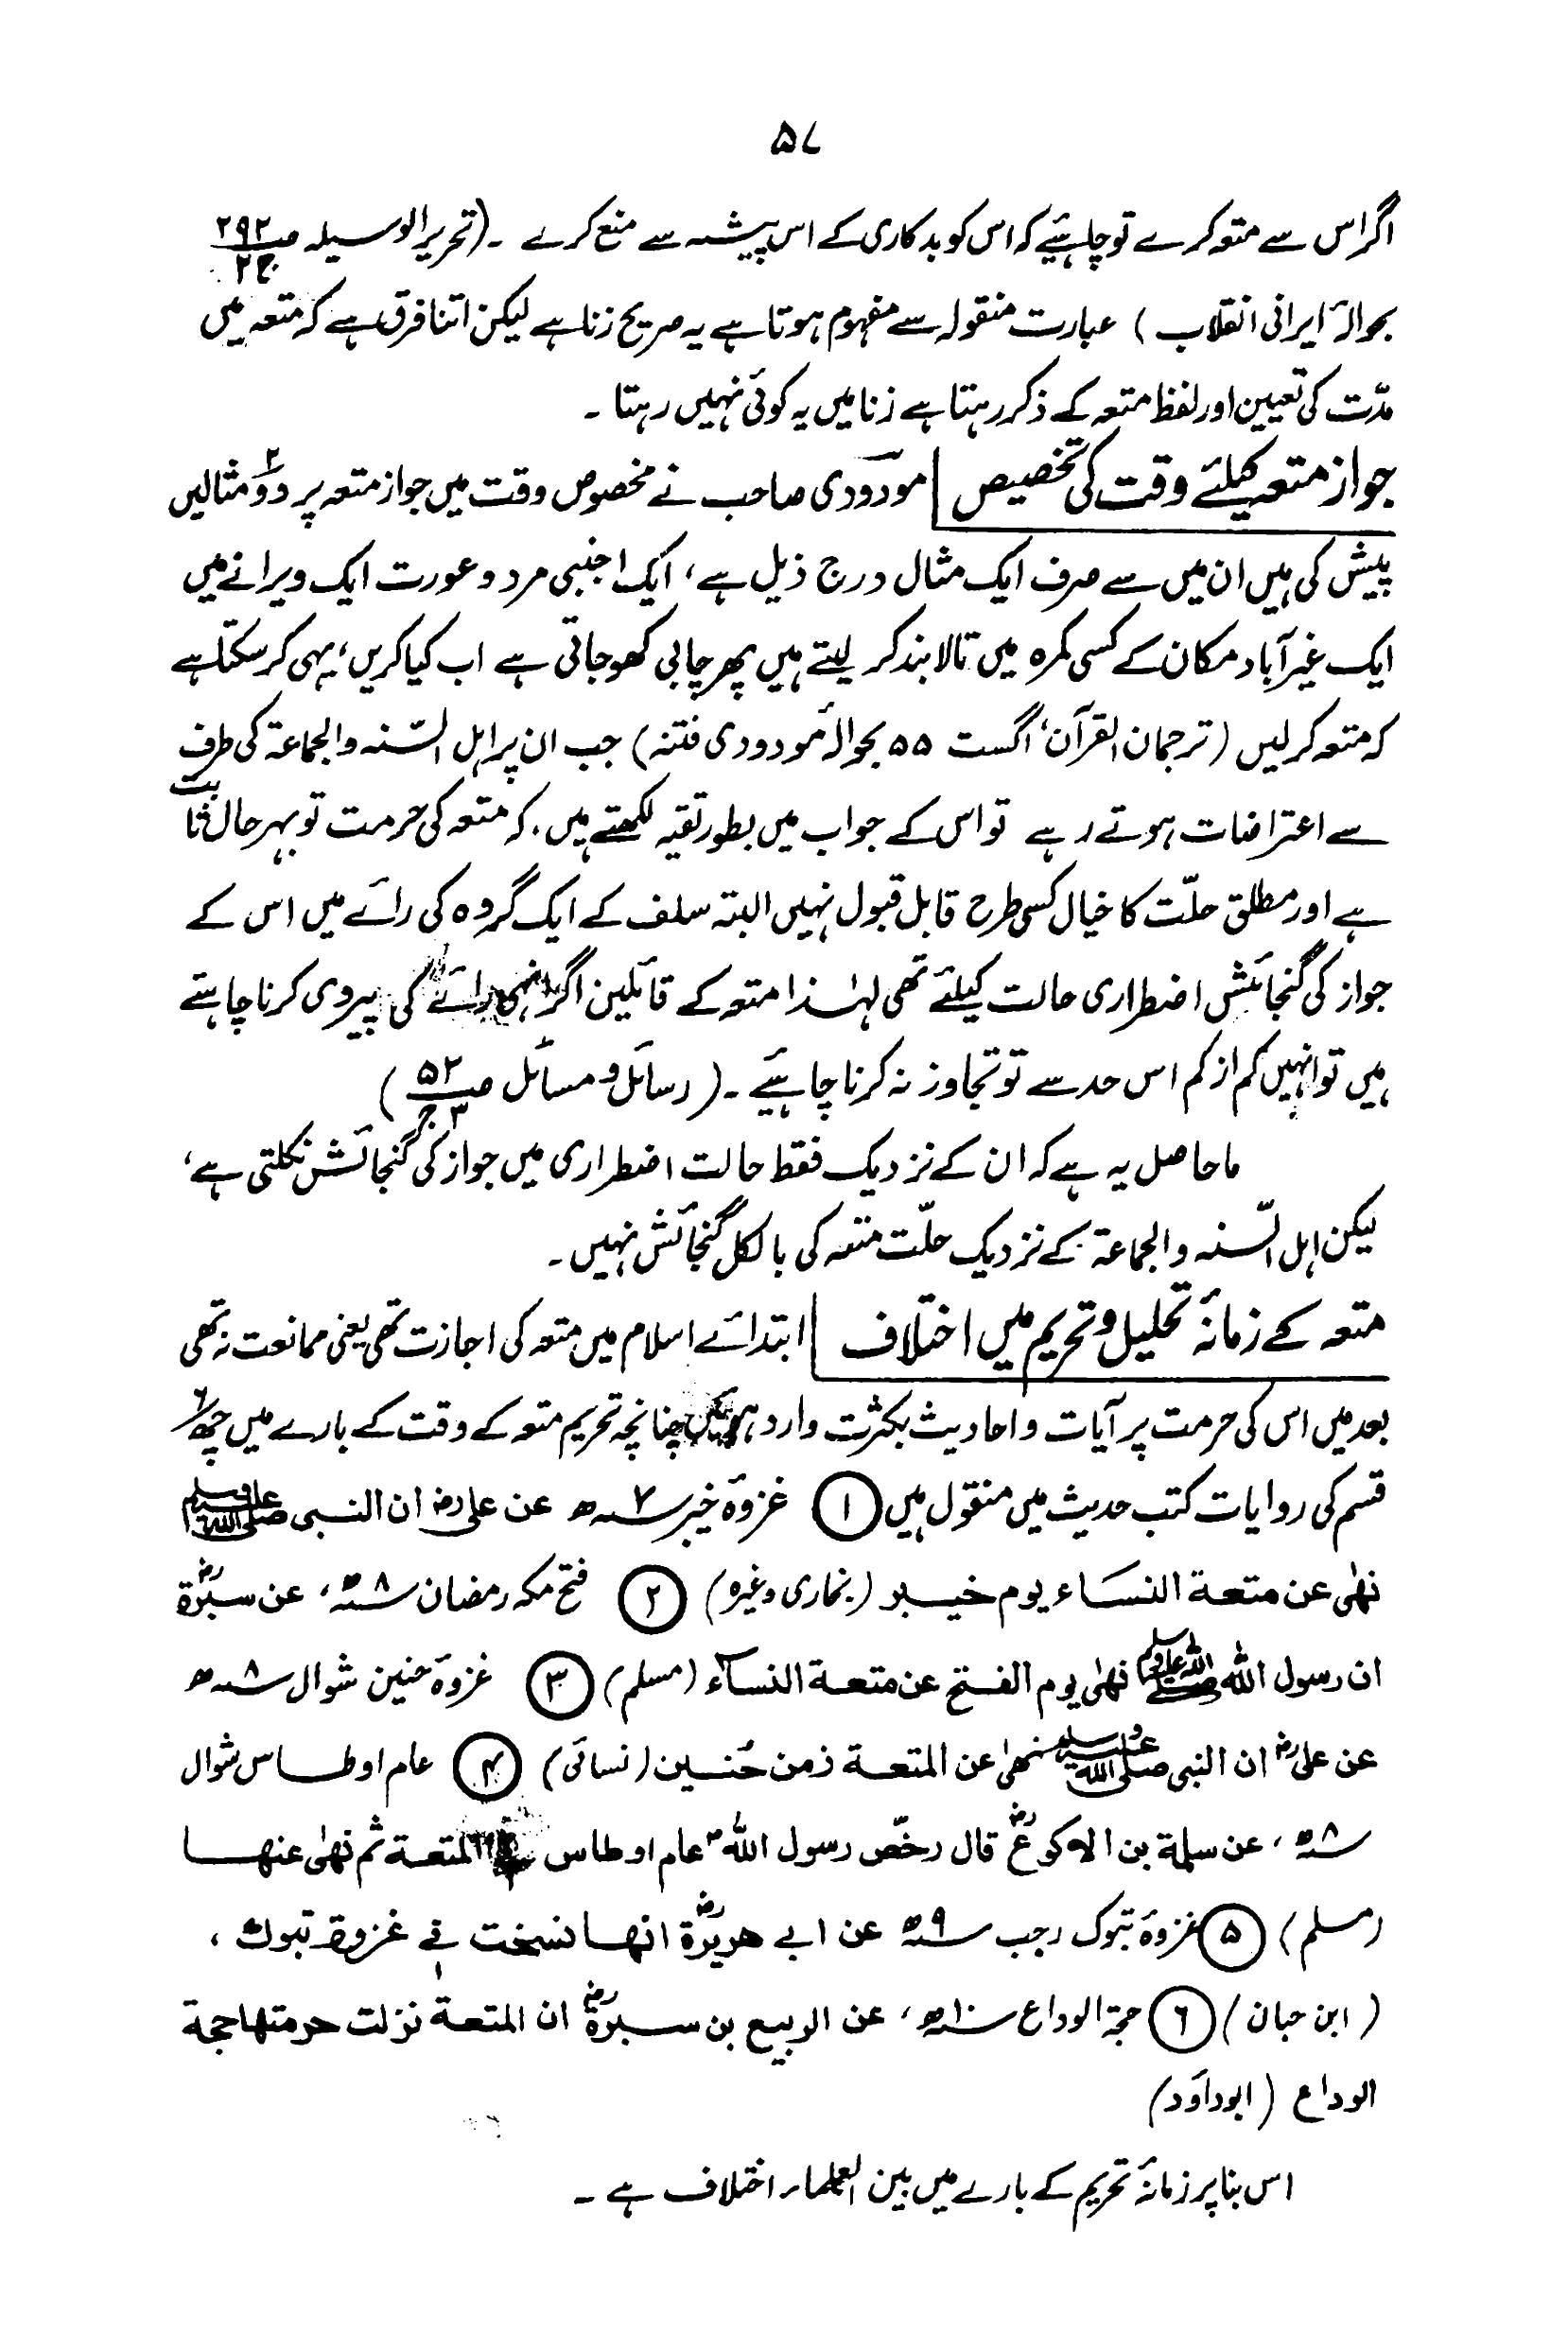 ۵۷
اگر اس سے متعہ کرے تو چاہئیے کہ اس کو بدکاری کے اس پیشہ سے منع کرے ۔ (تحریر الوسیلہ صـ۲۹۲ ج۲
بحوالۂ ایرانی انقلاب ) عبارت منقولہ سے مفہوم ہوتا ہے یہ صریح زنا ہے لیکن اتنا فرق ہے کہ متعہ میں
مدّت کی تعیین اور لفظ متعہ کے ذکر رہتا ہے زنا میں یہ کوئی نہیں رہتا ۔
جواز متعہ کیلئے وقت کی تخصیص | مودودی صاحب نے مخصوص وقت میں جواز متعہ پر دو۲ مثالیں
پیش کی ہیں ان میں سے صرف ایک مثال درج ذیل ہے ، ایک اجنبی مرد و عورت ایک ویرانے میں
ایک غیر آباد مکان کے کسی کمرہ میں تالا بند کر لیتے ہیں پھر چابی کھو جاتی ہے اب کیا کریں ، یہی کر سکتا ہے
کہ متعہ کرلیں (ترجمان القرآن ، اگست ۵۵ بحوالۂ مودودی فتنہ) جب ان پر اہل السّنہ والجماعۃ کی طرف
سے اعتراضات ہوتے رہے تو اس کے جواب میں بطور تقیہ لکھتے ہیں . کہ متعہ کی حرمت تو بہر حال ثابت
ہے اور مطلق حلّت کا خیال کسی طرح قابل قبول نہیں البتہ سلف کے ایک گروہ کی رائے میں اس کے
جواز کی گنجائش اضطراری حالت کیلئے تھی لہٰذا متعہ کے قائلین اگر انہی رائے کی پیروی کرنا چاہتے
ہیں تو انہیں کم از کم اس حد سے تو تجاوز نہ کرنا چاہئیے ۔ ( رسائل و مسائل صـ۵۲ ج۳ )
ماحاصل یہ ہے کہ ان کے نزدیک فقط حالت اضطراری میں جواز کی گنجائش نکلتی ہے ،
لیکن اہل السّنہ والجماعۃ کے نزدیک حلّت متعہ کی بالکل گنجائش نہیں ۔
متعہ کے زمانۂ تحلیل و تحریم میں اختلاف | ابتدائے اسلام میں متعہ کی اجازت تھی یعنی ممانعت نہ تھی
بعد میں اس کی حرمت پر آیات و احادیث بکثرت وارد ہوئیں چنانچہ تحریم متعہ کے وقت کے بارے میں چھ۶
قسم کی روایات کتب حدیث میں منقول ہیں ① غزوۂ خیبر سنہ ۷ھ عن علی رض ان النبی صلی اللہ علیہ وسلم
نھٰی عن متعۃ النساء یوم خیبر (بخاری وغیرہ) ② فتح مکہ رمضان سنہ ۸ھ ، عن سبرۃ رض
ان رسول اللہ صلی اللہ علیہ وسلم نھٰی یوم الفتح عن متعۃ النساء (مسلم) ③ غزوۂ حنین شوال سنہ ۸ھ
عن علی رض ان النبی صلی اللہ علیہ وسلم نھٰی عن المتعۃ زمن حُنین (نسائی) ④ عام اوطاس شوال
سنہ ۸ھ ، عن سلمۃ بن الاکوع رض قال رخّص رسول اللہ ؐ عام اوطاس المتعۃ ثم نھٰی عنھا
(مسلم) ⑤ غزوۂ تبوک رجب سنہ ۹ھ عن ابی ھریرۃ رض انھا نسخت فی غزوۃ تبوک ،
( ابن حبان ) ⑥ حجۃ الوداع سنہ ۱۰ھ ، عن الربیع بن سبرۃ رض ان المتعۃ نزلت حرمتھا حجۃ
الوداع (ابوداؤد)
اس بنا پر زمانۂ تحریم کے بارے میں بین العلماء اختلاف ہے ۔